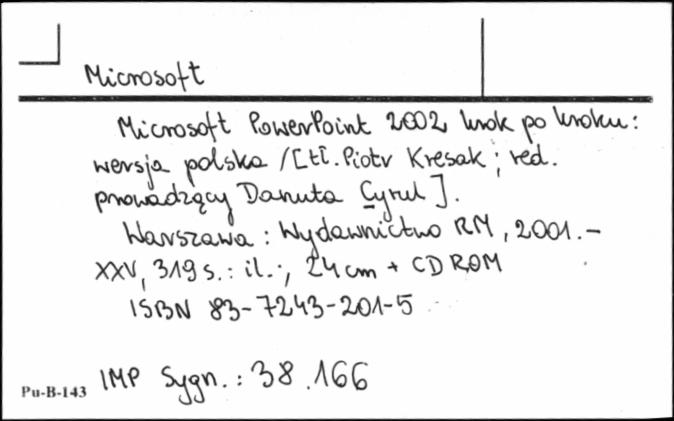 Microsoft
Microsoft PowerPoint 2002 krok po kroku:
wersja polska / [tł. Piotr Kresak ; red.
prowadzący Danuta Cyrul].
Warszawa : Wydawnictwo RM, 2001.-
XXV, 319 s. : il. ; 24 cm + CD ROM
ISBN 83-7243-201-5
Pu-B-143 IMP Sygn.: 38.166